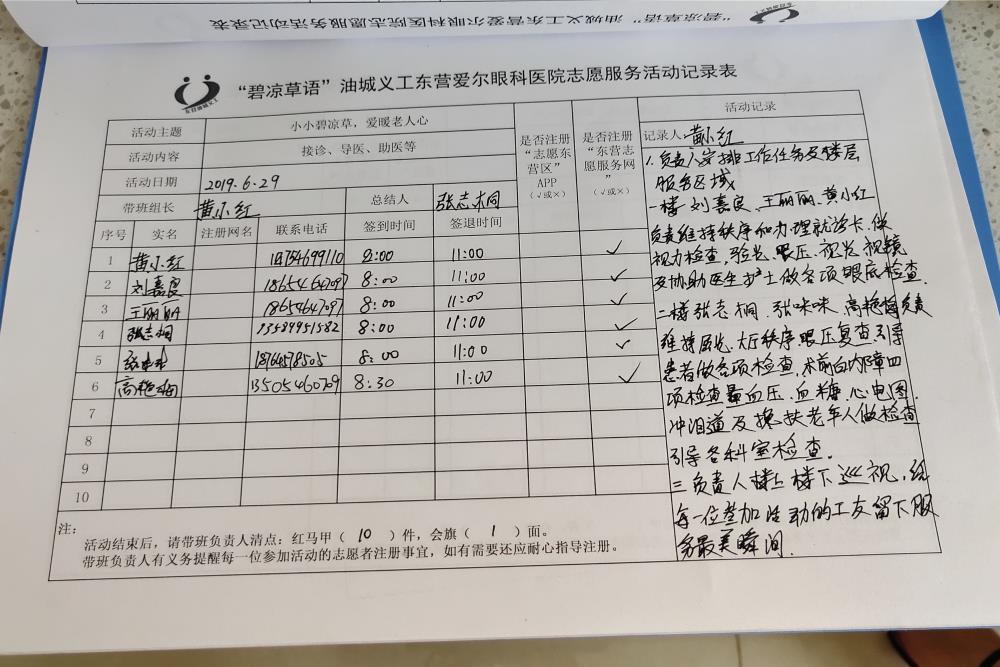 "碧凉草语"油城义工东营爱尔眼科医院志愿服务活动记录表
东营油城义工
"碧凉草语"油城义工东营爱尔眼科医院志愿服务活动记录表
活动主题 小小碧凉草，爱暖老人心 是否注册"志愿东营区"APP（√或×） 是否注册"东营志愿服务网"（√或×） 活动记录
活动内容 接诊、导医、助医等
活动日期 2019.6.29
带班组长 黄小红 总结人 张志桐
序号 实名 注册网名 联系电话 签到时间 签退时间
1 黄小红 18754699110 8:00 11:00 ✓
2 刘嘉良 18654647097 8:00 11:00 ✓
3 王丽丽 18654647097 8:00 11:00 ✓
4 张志桐 13589951582 8:00 11:00 ✓
5 18764578505 8:00 11:00 ✓
6 高艳梅 13505460709 8:30 11:00 ✓
7
8
9
10
记录人：黄小红
1.负责人安排工作任务及楼层
服务区域
一楼 刘嘉良、王丽丽、黄小红
负责维持秩序和办理就诊卡、做
视力检查，验光、眼压、视光、视镜
及协助医生护士做各项眼底检查.
二楼张志桐、张咪咪、高艳梅负责
维持 大厅秩序眼压复查引导
患者做各项检查，术前白内障四
项检查量血压、血糖、心电图、
冲泪道及搀扶老年人做检查
引导各科室检查.
三负责人楼上楼下巡视，给
每一位参加活动的工友留下服
务最美瞬间.
注：
活动结束后，请带班负责人清点：红马甲（ 10 ）件，会旗（ 1 ）面。
带班负责人有义务提醒每一位参加活动的志愿者注册事宜，如有需要还应耐心指导注册。